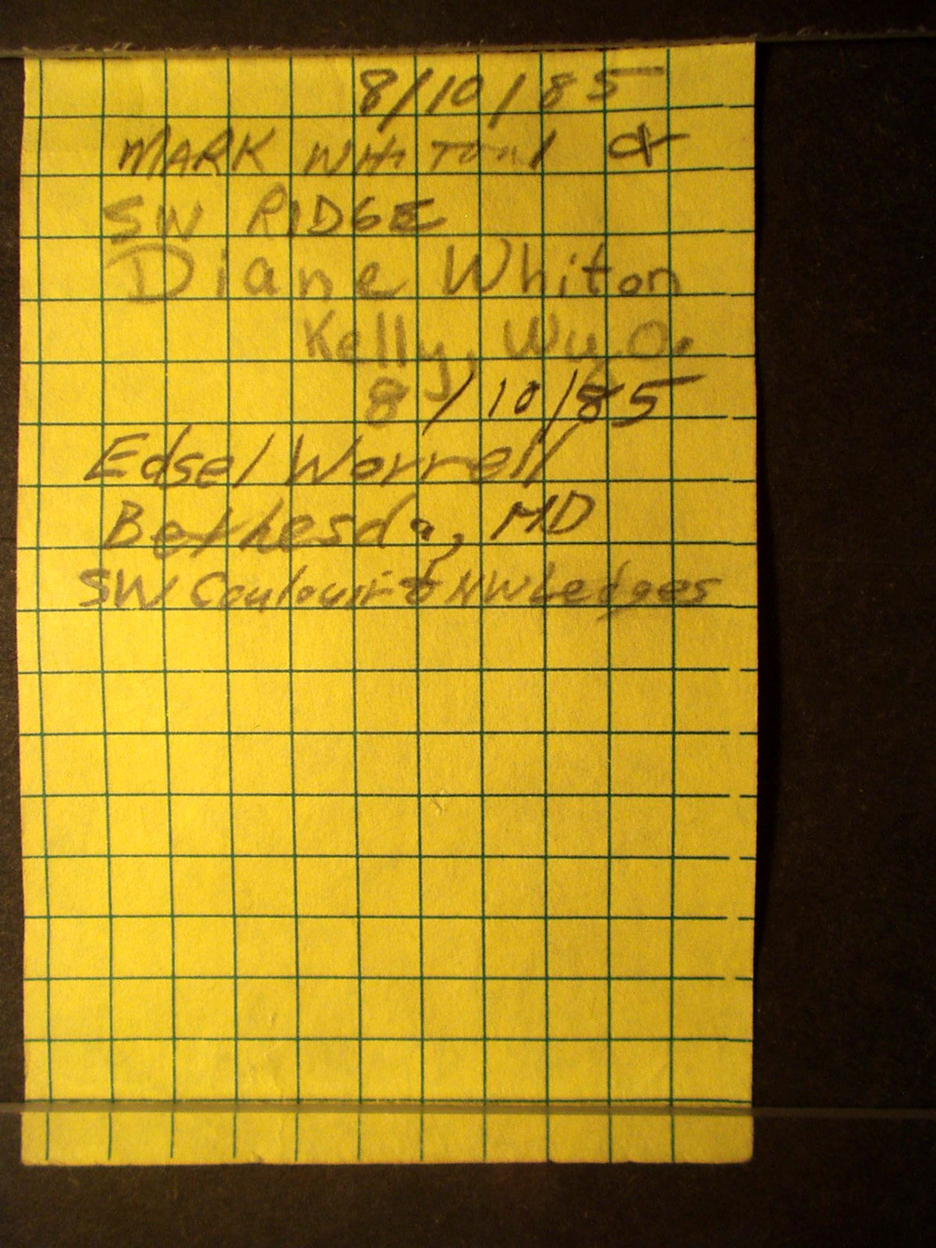 8/10/85
MARK WHITON &
SW RIDGE
Diane Whiton
Kelly, Wyo.
8/10/85
Edsel Worrell
Bethesda, MD
SW Couloir & NW Ledges